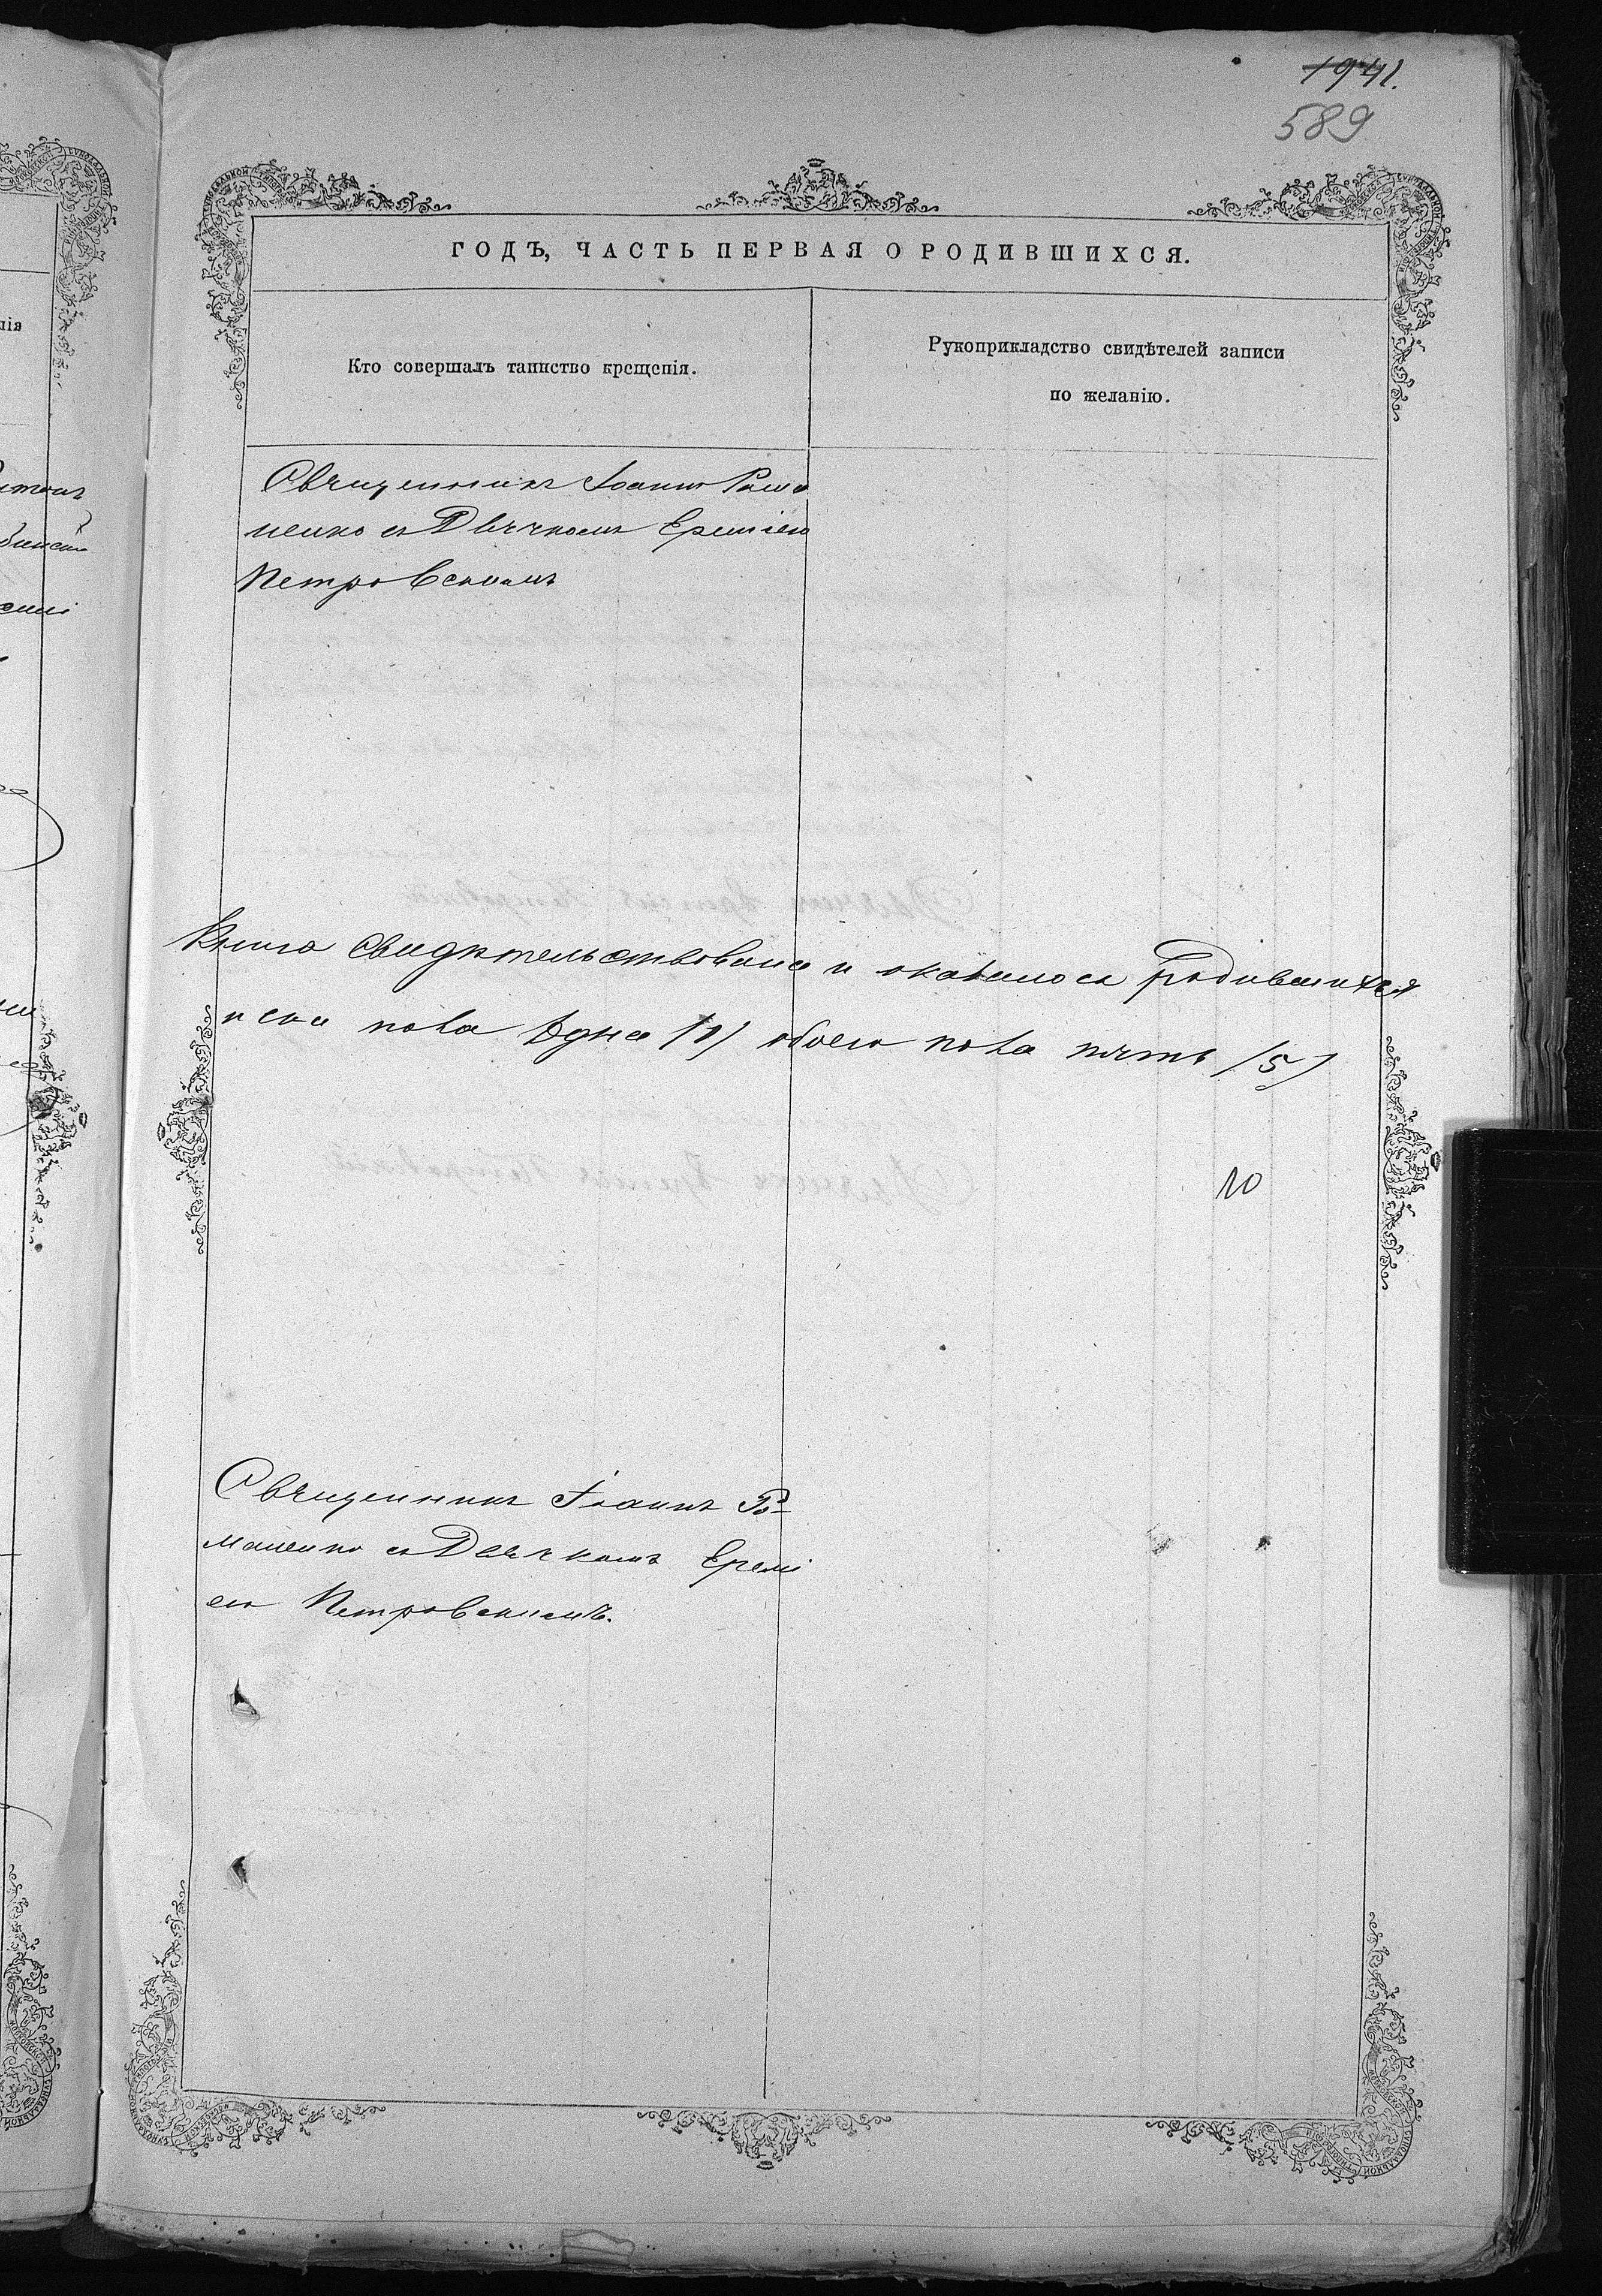 1941.
589
ГОДЪ, ЧАСТЬ ПЕРВАЯ О РОДИВШИХСЯ.
Кто совершалъ таинство крещенія.
Рукоприкладство свидѣтелей записи
по желанію.
Священникъ Іоаннъ Рома
ненко съ Дьячкомъ Ереміею
Петровскимъ
Книга свидѣтельствована и оказалось родившихся
пола одна /1/ обоего пола пять /5/
10
Священникъ Іоаннъ Ро-
маненко съ Дьячкомъ Еремі
ею Петровскимъ.